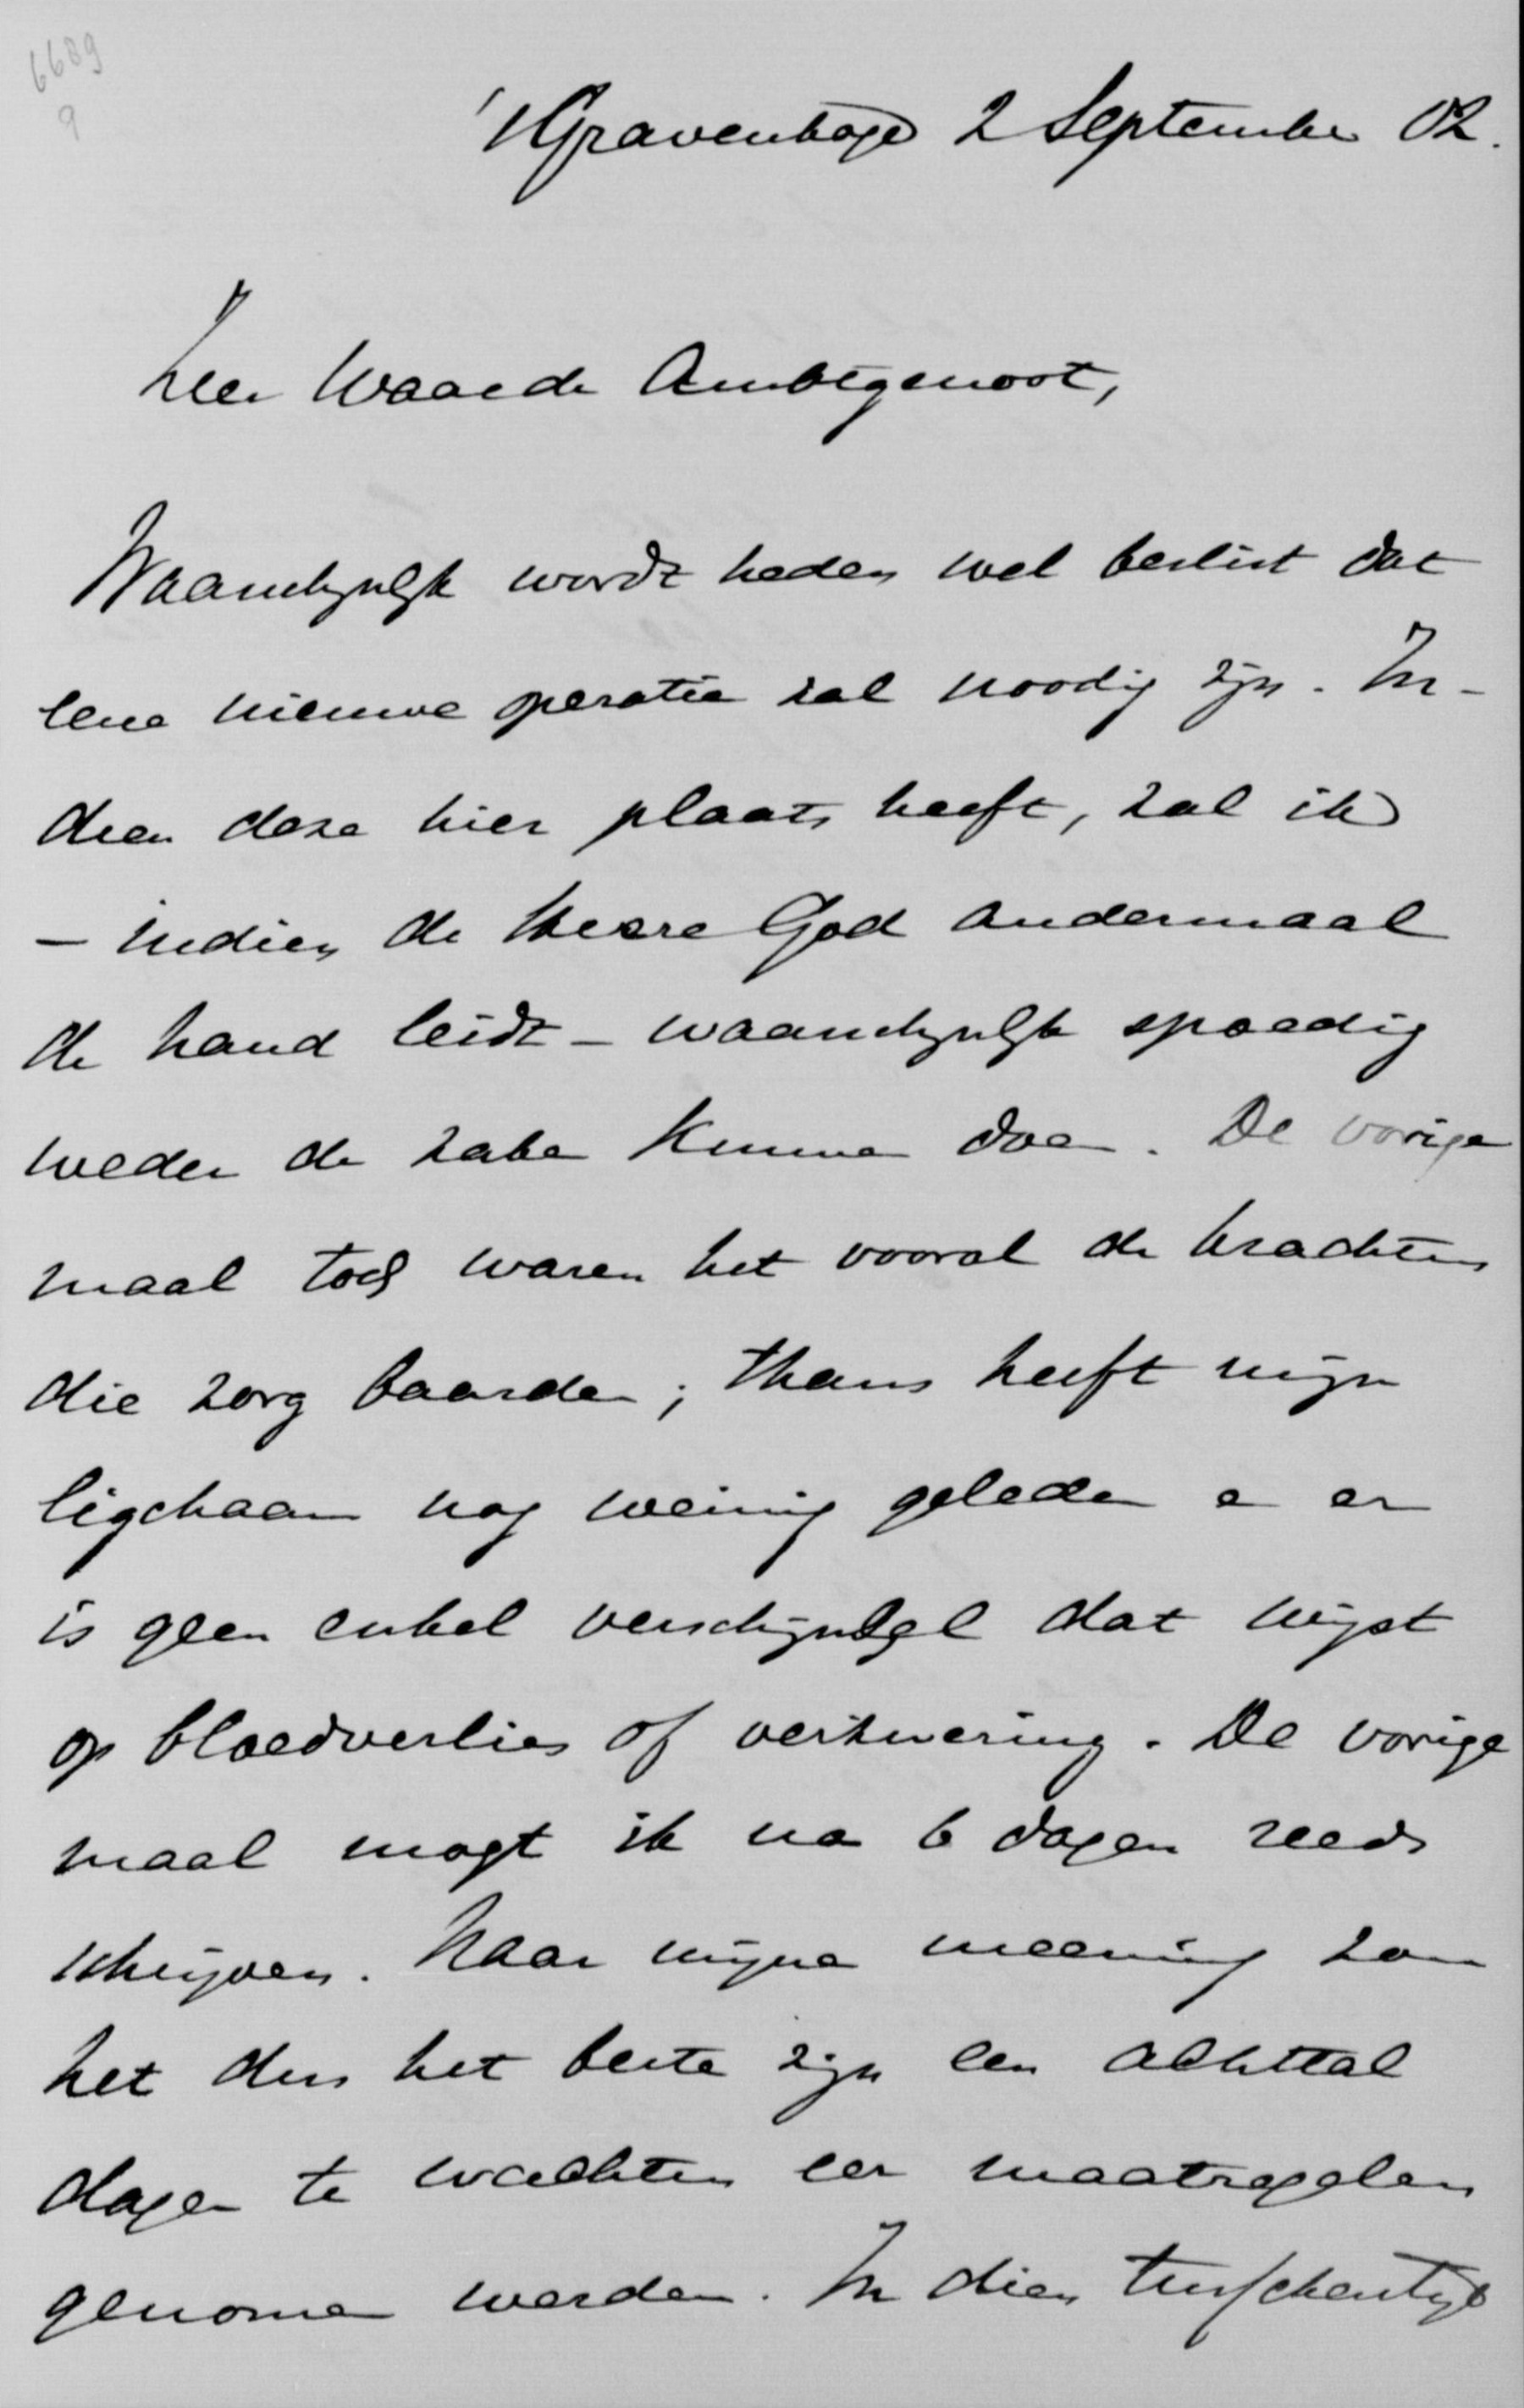 6689
9
's Gravenhage 2 September 02.
Zeer Waarde Ambtgenoot,
Waarschijnlijk wordt heden wel beslist dat
eene nieuwe operatie zal noodig zijn. In-
dien deze hier plaats heeft, zal ik
- indien de Heere God andermaal
de hand leidt - waarschijnlijk spoedig
weder de zaken kunnen doen. De vorige
maal toch waren het vooral de krachten
die zorg baarden; thans heeft mijn
ligchaam nog weinig geleden en er
is geen enkel verschijnsel dat wijst
op bloedverlies of verzwering. De vorige
maal mogt ik na 6 dagen reeds
schrijven. Naar mijne meening zou
het dus het beste zijn een achttal
dagen te wachten eer maatregelen
genomen werden. In dien tusschentijd